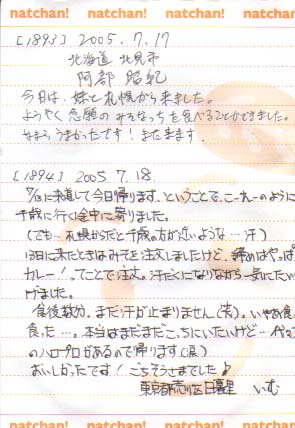 natchan! natchan! natchan! natchan!
[1893] 2005. 7. 17
北海道 北見市
阿部 昭紀
今日は、妹と札幌から来ました。
ようやく念願のみそなっちを食べることができました。
うまかったです! また来ます。
[1894] 2005. 7. 18.
7/13に来道して今日帰ります。ということで、こーれーのように
千歳に行く途中に寄りました。
(でも…札幌からだと千歳の方が近いような…汗)
13日に来たときはみそを注文しましたけど、締めはやっぱ
カレー!ってことで注文。汗だくになりながら一気にたい
げました。
食後数分、まだ汗が止まりません(笑)。いやあ食
食った…。本当はまだまだこっちにいたいけど…
のハロプロがあるので帰ります(涙)
おいしかったです! ごちそうさまでした♪
東京都荒川区日暮里 いむ
natchan! natchan! natchan! natchan!